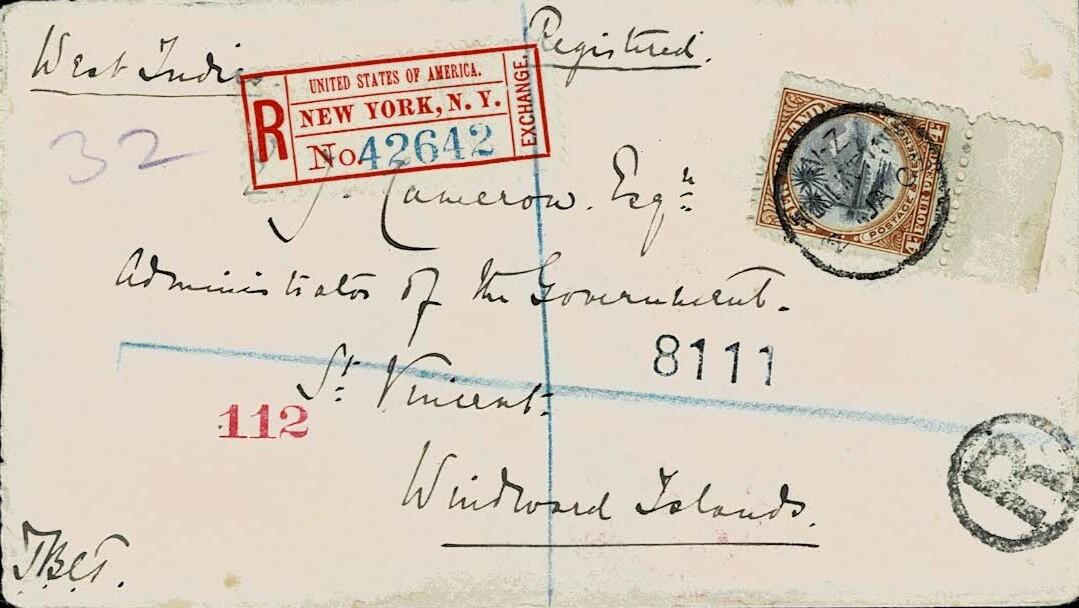 West Indies
Registered.
UNITED STATES OF AMERICA.
NEW YORK, N. Y.
No. 42642
R
EXCHANGE.
32
J. Cameron. Esqre
Administrator of the Government.
St Vincent.
Windward Islands.
8111
112
R
POSTAGE & REVENUE
FOUR PENCE